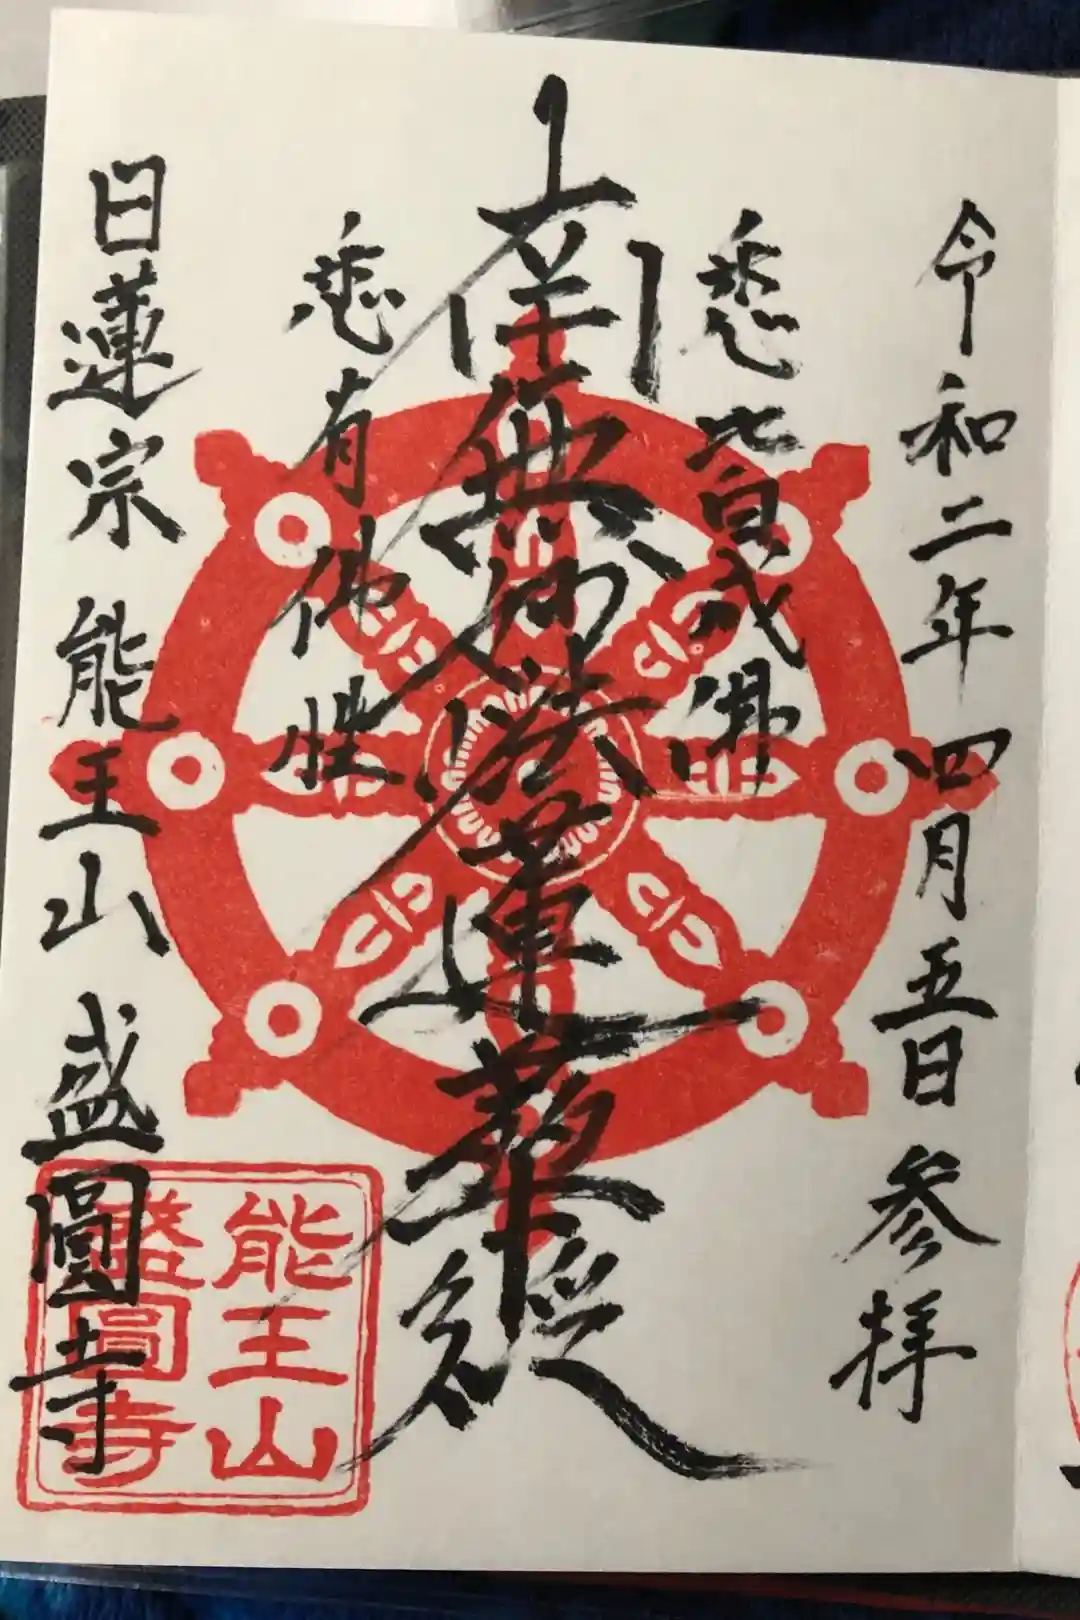 令和二年四月五日参拝
悉皆成佛
南無妙法蓮華経
悉有佛性
日蓮宗 能王山 盛圓寺
能王山
盛圓寺